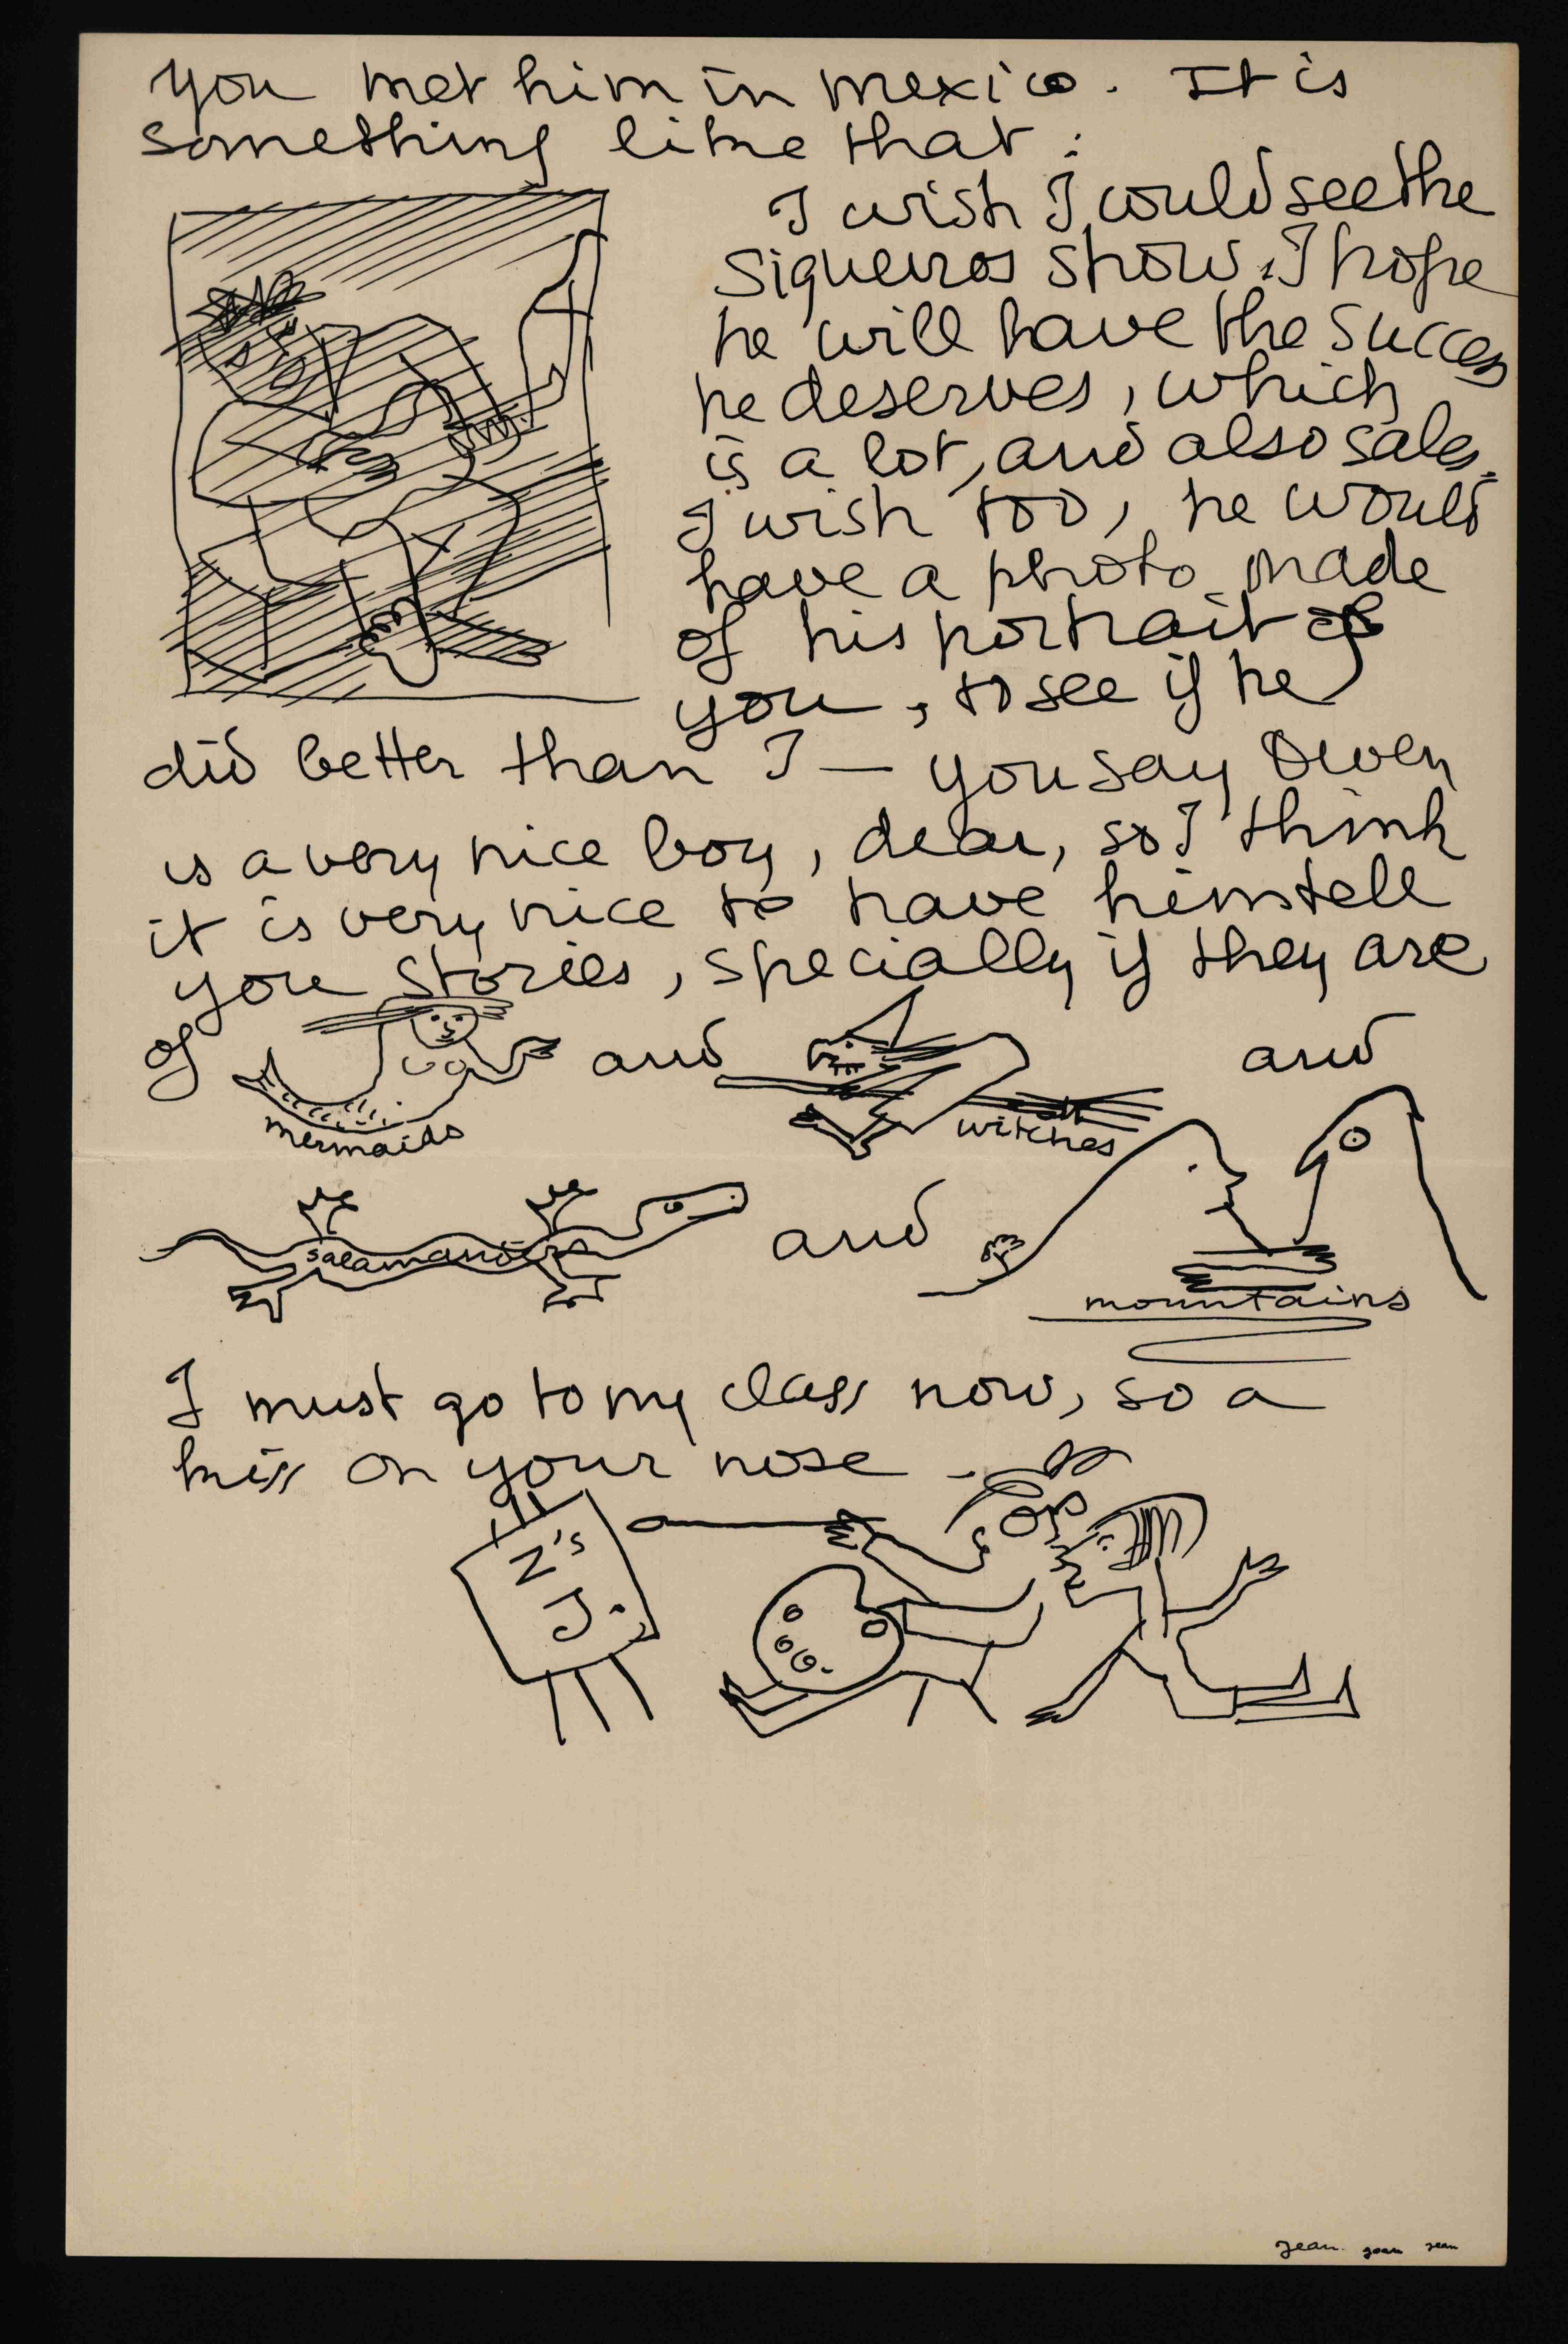 you met him in mexico. It is
something like that :
I wish I could see the
Siqueiros show. I hope
he will have the success
he deserves, which
is a lot, and also sales.
I wish too, he would
have a photo made
of his portrait of
you, to see if he
did better than I — you say Owen
is a very nice boy, dear, so I think
it is very nice to have him tell
you stories, specially if they are
of and and
mermaids witches
salamand and
mountains
I must go to my class now, so a
kiss on your nose -
N's
J.
Jean. Jean Jean